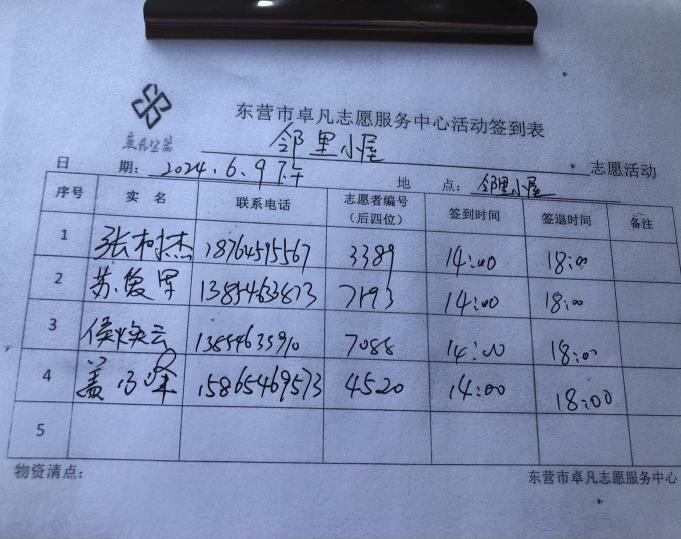 东营市卓凡志愿服务中心活动签到表
邻里小屋 志愿活动
日 期: 2024.6.9下午 地 点: 邻里小屋
序号 实 名 联系电话 志愿者编号(后四位) 签到时间 签退时间 备注
1 张树杰 18764595567 3389 14:00 18:00
2 苏俊军 13854633873 7193 14:00 18:00
3 侯焕云 13854633910 7088 14:00 18:00
4 盖 15865469573 4520 14:00 18:00
5
物资清点: 东营市卓凡志愿服务中心